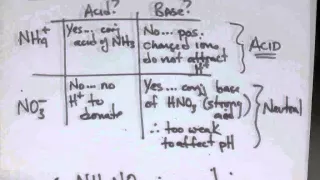 Acid?
Base?
NH4+
Yes... conj
acid of NH3
No... pos.
charged ions
do not attract
H+
ACID
NO3-
No... no
H+ to
donate
Yes... conj base
of HNO3 (strong
acid)
∴ too weak
to affect pH
Neutral